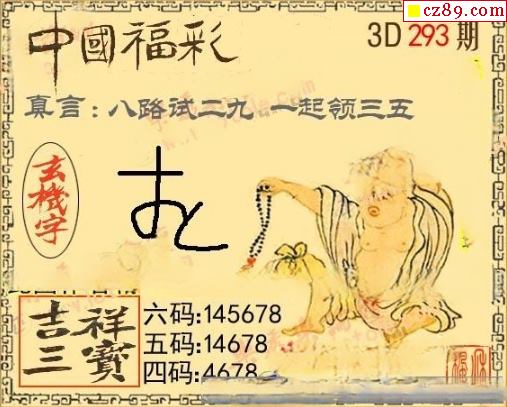 cz89.com
中國福彩
3D 293 期
真言：八路试二九 一起领三五
玄機字
吉祥三寶
六码:145678
五码:14678
四码:4678